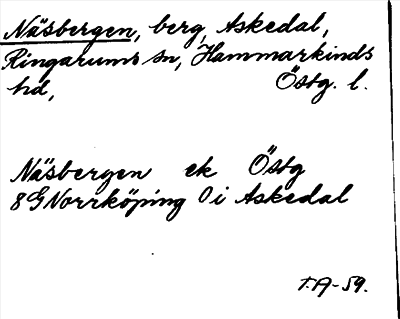 Näsbergen, berg, Askedal,
Ringarums sn, Hammarkinds
hd, Östg. l.
Näsbergen ek Östg
8G Norrköping O i Askedal
T.A-59.